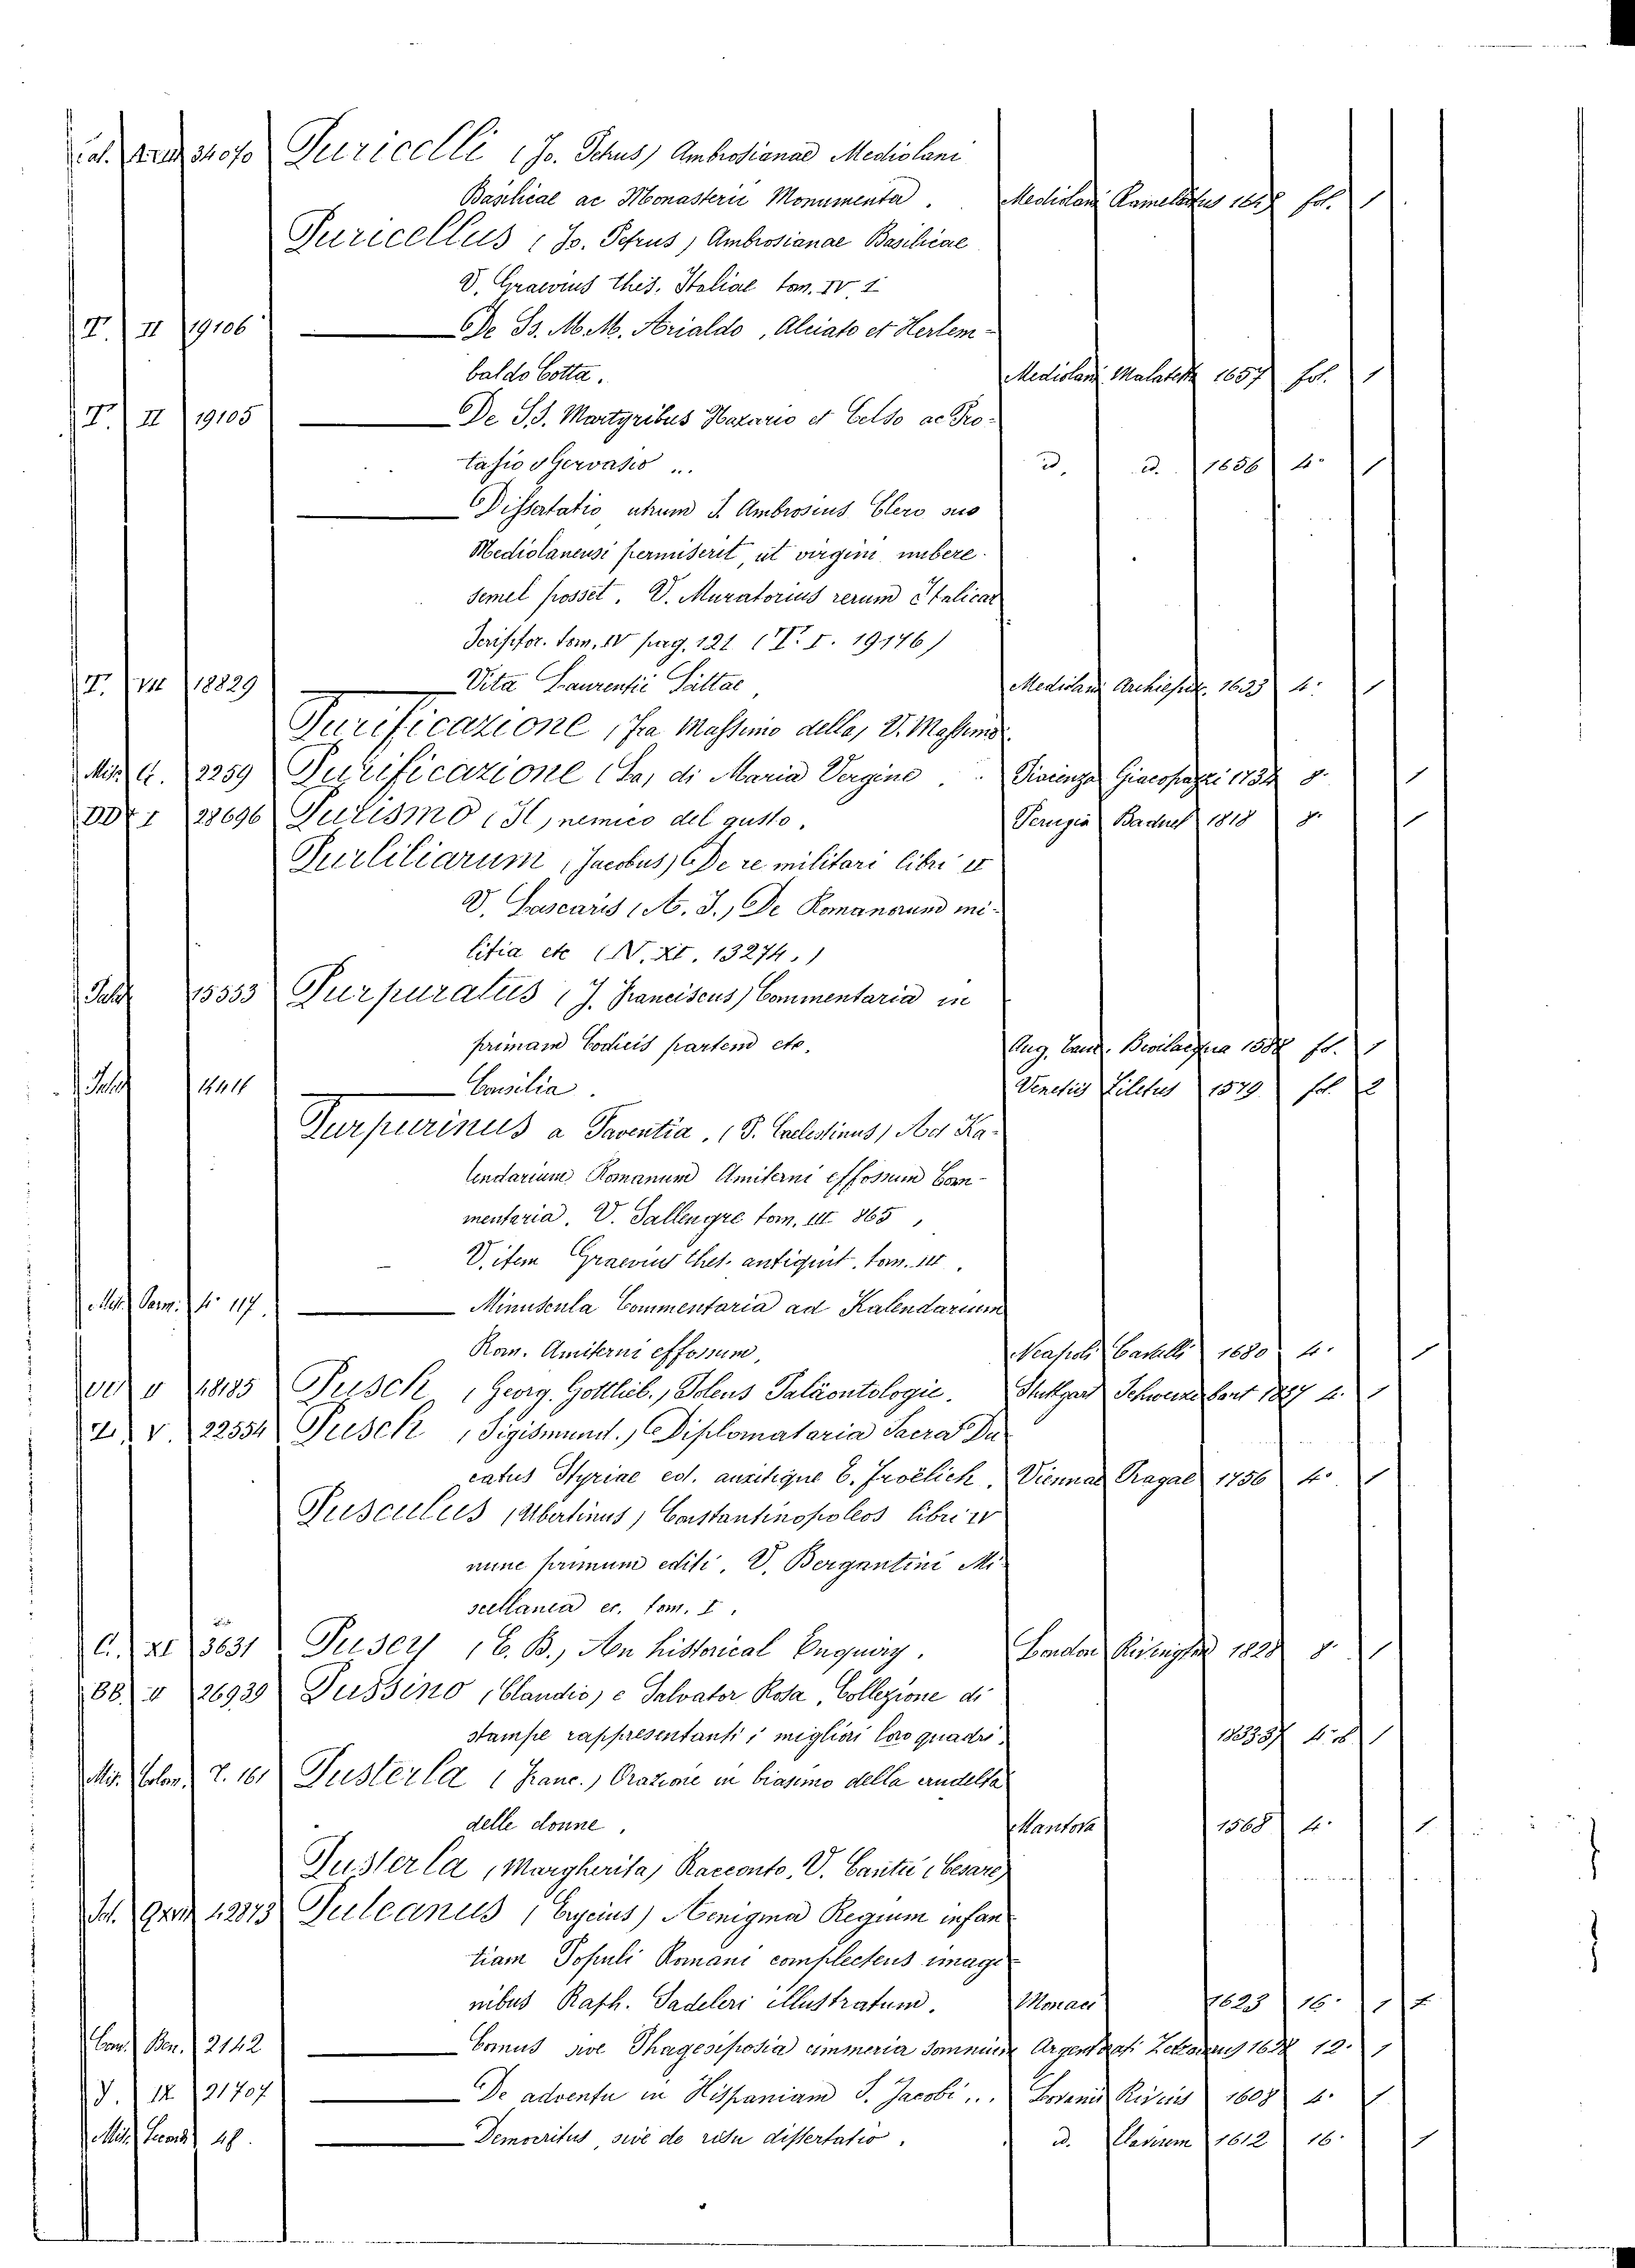 34070 Puricelli (Jo. Petrus) Ambrosianae Mediolani
Basilicae ac Monasterii Monumenta. Mediolani Ramellatus fol. 1
Puricellus (Jo. Petrus) Ambrosianae Basilicae
V. Graevius Thes. Italiae tom. IV. 1
T. II 19106 De Ss. M.M. Arialdo, Alciato et Herlem-
baldo Cotta. Mediolani Malatesta 1657 fol. 1
T. II 19105 De S.S. Martyribus Nazario et Celso ac Pro-
tasio & Gervasio ... d. d. 1656 4° 1
Dissertatio utrum S. Ambrosius Clero suo
Mediolanensi permiserit, ut virgini nubere
semel posset. V. Muratorius rerum Italicar
Scriptor. tom. IV pag. 121 (T. I. 19176)
T. VII 18829 Vita Laurentii Mediolani Archiepisc. 1633 4° 1
Purificazione (Fra Massimo della) V. Massimo
Misc. C. 2259 Purificazione (La) di Maria Vergine. Piacenza Giacopazzi 1732 8° 1
DD I 28696 Purismo (Il) nemico del gusto. Perugia Baduel 1818 8° 1
Purliliarum (Jacobus) De re militari libri II
V. Lascaris (A. J.) De Romanorum mi-
litia etc (N. XI. 13274.)
15353 Purpuratus (J. Franciscus) Commentaria in
primam Codicis partem etc. Aug. Taur. Bevilacqua 1588 fol. 1
Consilia. Venetiis Ziletus 1579 fol. 2
Purpurinus a Faventia. (P. Caelestinus) Ad Ka-
lendarium Romanum Amiterni effossum Com-
mentaria. V. Sallengre tom. III 865,
V. item Graevius thes. antiquit. tom. III.
Misc. Parm. 4° 117. Minuscula Commentaria ad Kalendarium
Rom. Amiterni effossum, Neapoli Castelli 1680 4° 1
V 18185 Pusch (Georg. Gottlieb.) Polens Paläontologie. Stuttgart Schweizerbart 1837 4. 1
Z. V. 22554 Pusch (Sigismund.) Diplomataria Sacra Du-
catus Styriae ed. auxitque E. Froelich. Viennae Pragae 1756 4° 1
Pusculus (Ubertinus) Constantinopoleos libri IV
nunc primum editi. V. Bergantini Mi-
scellanea ec. tom. I.
C. XI 3631 Pusey (E. B.) An historical Enquiry. London Rivington 1828 8° 1
BB. V 26939 Pussino (Claudio) e Salvator Rosa, Collezione di
stampe rappresentanti i migliori loro quadri. 1
Mis. Colon. T. 161 Pusterla (Franc.) Orazione in biasimo della crudelta
delle donne. Mantova 1568 4° 1
Pusterla (Margherita) Racconto. V. Cantù (Cesare)
42873 Puteanus (Erycius) Aenigma Regium infan-
tiam Populi Romani complectens imagi-
nibus Raph. Sadeleri illustratum. Monaci 1623 16° 1
Ben. 2142 Comus sive Phagesiposia cimmeria somnium Argentorati 12. 1
J. IX 21707 De adventu in Hispaniam S. Jacobi ... Lovanii Rivius 1608 4. 1
Misc. 48. Democritus, sive de risu dissertatio. d. 1612 16° 1